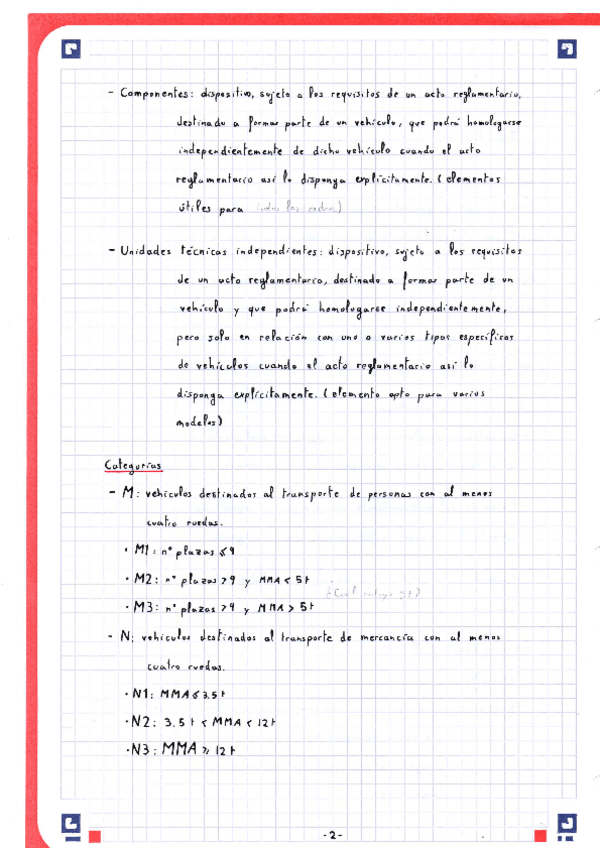 - Componentes: dispositivo, sujeto a los requisitos de un acto reglamentario,
destinado a formar parte de un vehículo, que podrá homologarse
independientemente de dicho vehículo cuando el acto
reglamentario así lo disponga explícitamente. (elementos
útiles para
- Unidades técnicas independientes: dispositivo, sujeto a los requisitos
de un acto reglamentario, destinado a formar parte de un
vehículo y que podrá homologarse independientemente,
pero solo en relación con uno o varios tipos específicos
de vehículos cuando el acto reglamentario así lo
disponga explícitamente. (elemento apto para varios
modelos)
Categorías
- M: vehículos destinados al transporte de personas con al menos
cuatro ruedas.
· M1: nº plazas ≤ 9
· M2: nº plazas > 9 y MMA < 5t
· M3: nº plazas > 9 y MMA > 5t
- N: vehículos destinados al transporte de mercancía con al menos
cuatro ruedas.
· N1: MMA ≤ 3.5t
· N2: 3.5t < MMA < 12t
· N3: MMA ≥ 12t
-2-